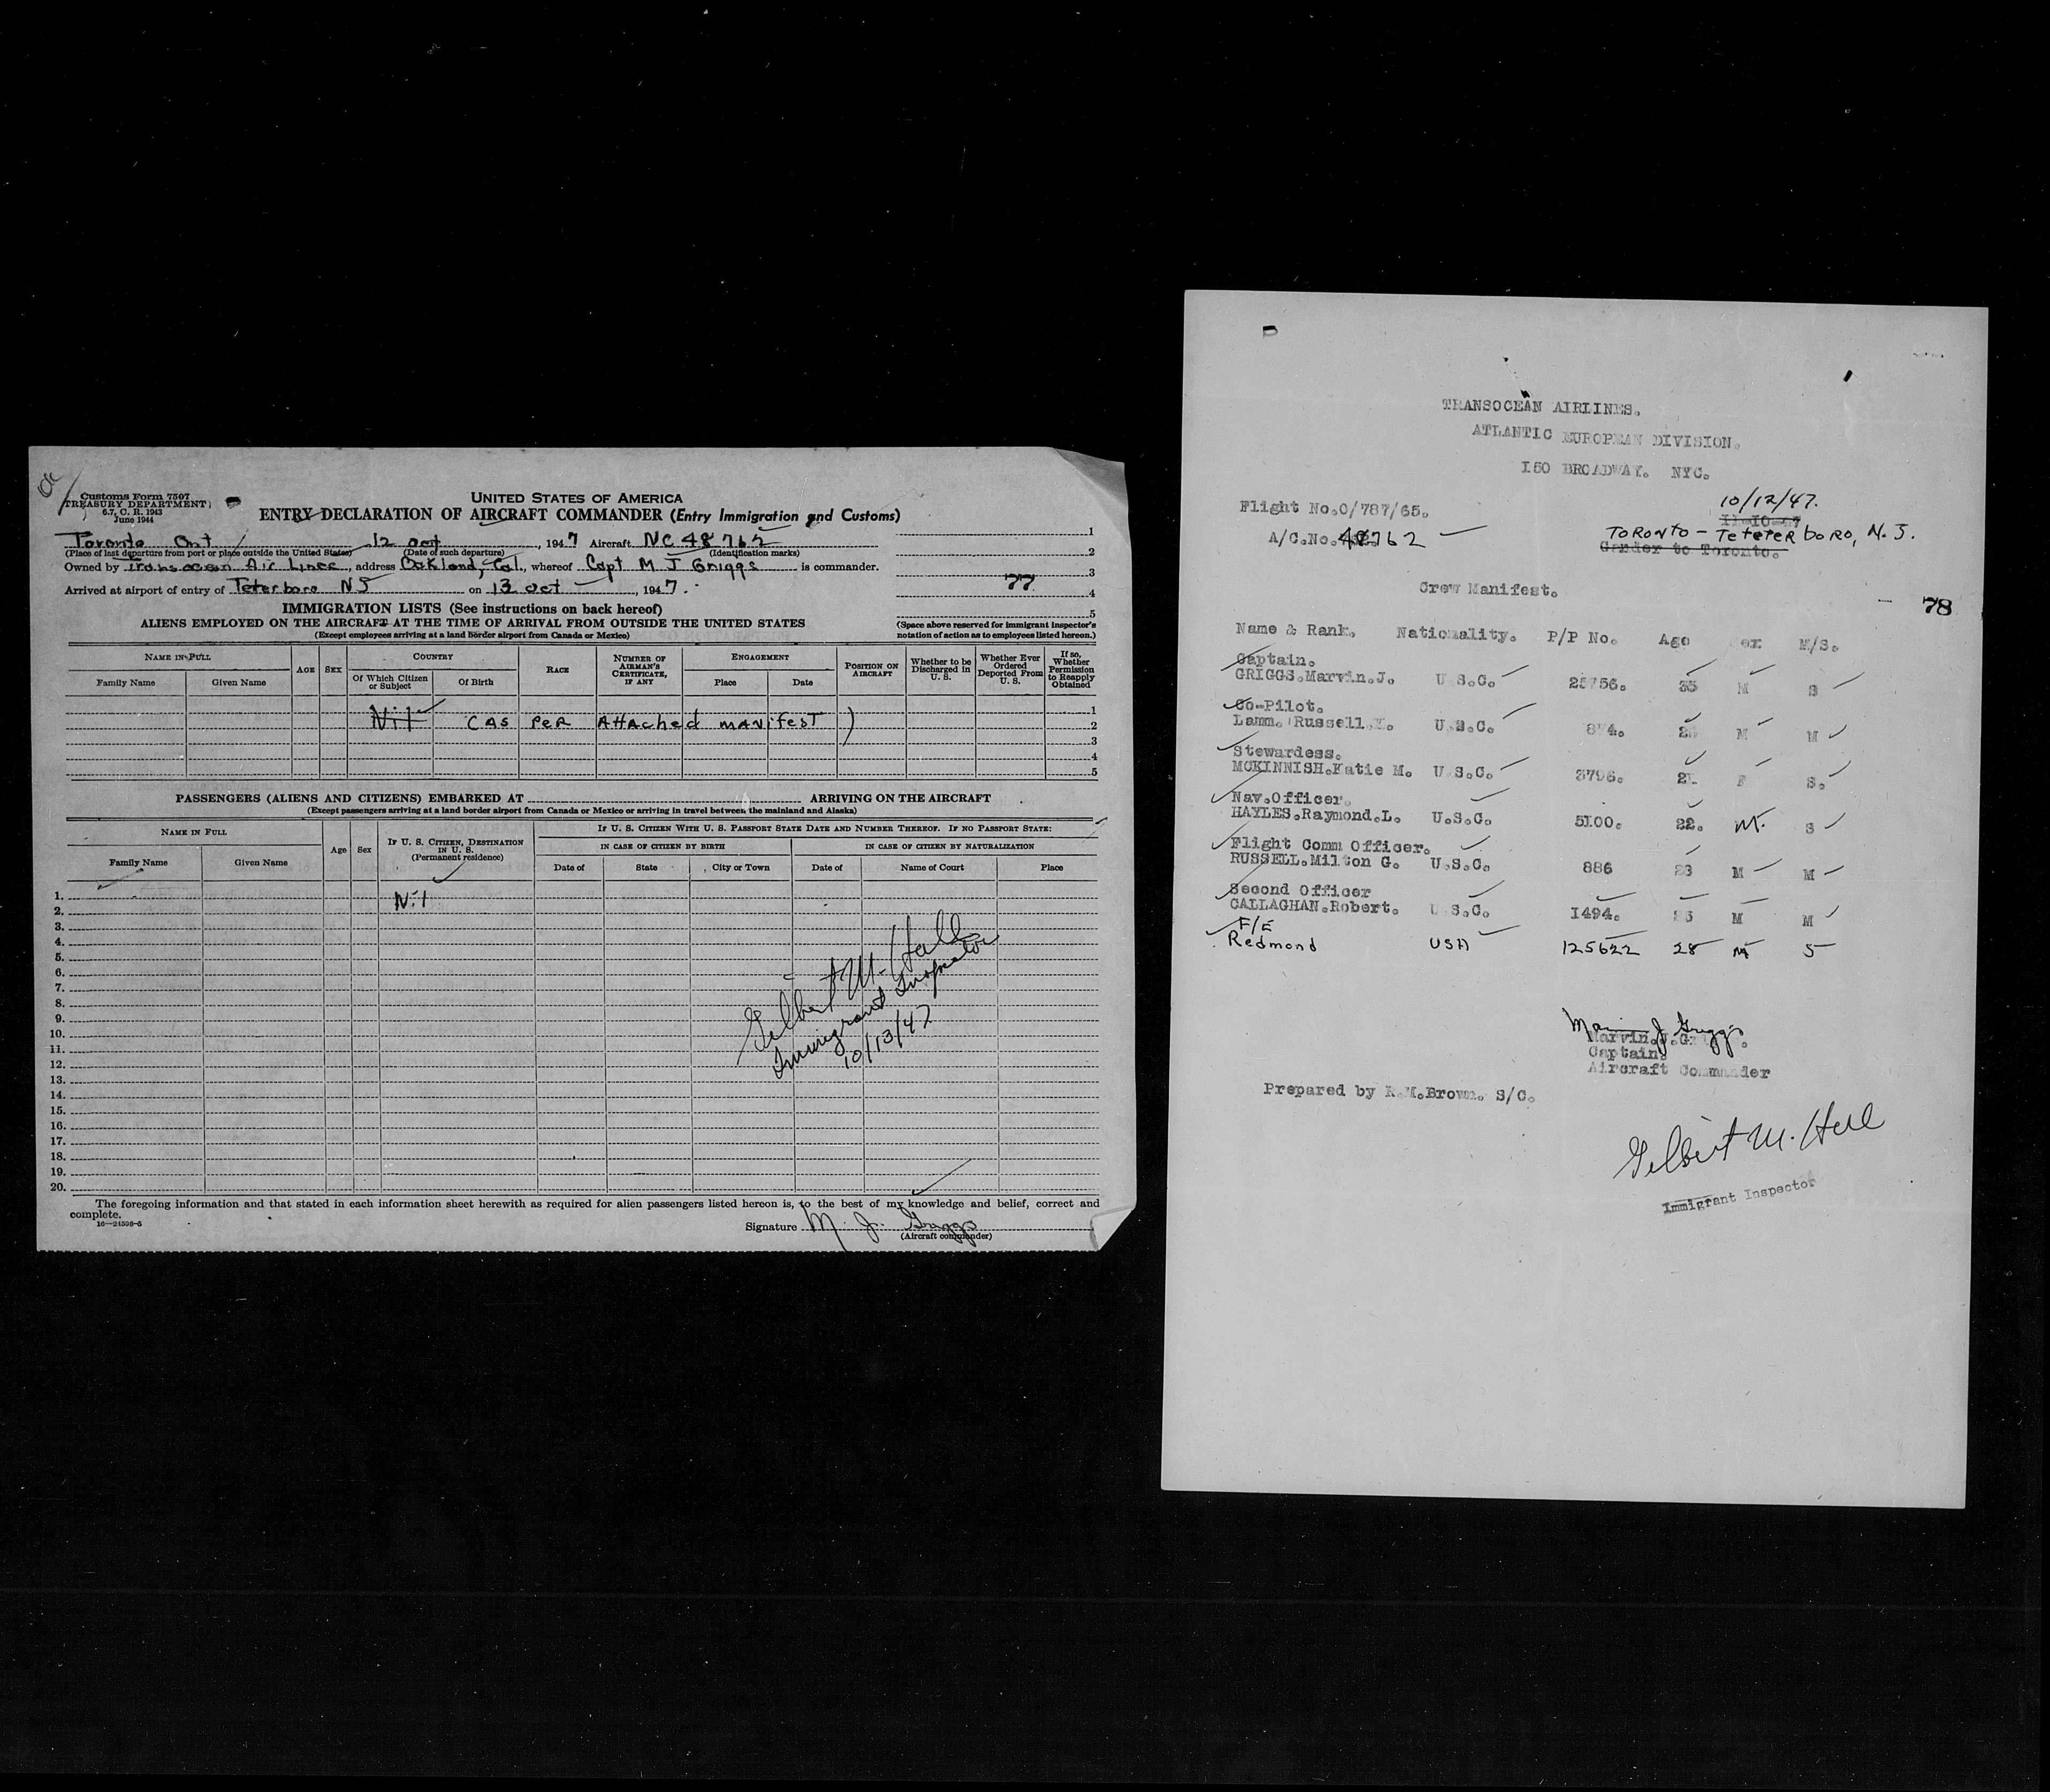 OK
Customs Form 7507
TREASURY DEPARTMENT
6.7, C. R. 1943
June 1944
UNITED STATES OF AMERICA
ENTRY DECLARATION OF AIRCRAFT COMMANDER (Entry Immigration and Customs)
Toronto Ont 12 Oct, 1947 Aircraft NC 48762
(Place of last departure from port or place outside the United States) (Date of such departure) (Identification marks)
Owned by Transocean Air Lines, address Oakland, Cal., whereof Capt M J Griggs is commander.
Arrived at airport of entry of Teterboro NJ on 13 Oct, 1947.
1
2
3
77
4
5
(Space above reserved for immigrant inspector's
notation of action as to employees listed hereon.)
IMMIGRATION LISTS (See instructions on back hereof)
ALIENS EMPLOYED ON THE AIRCRAFT AT THE TIME OF ARRIVAL FROM OUTSIDE THE UNITED STATES
(Except employees arriving at a land border airport from Canada or Mexico)
NAME IN FULL AGE SEX COUNTRY RACE NUMBER OF AIRMAN'S CERTIFICATE, IF ANY ENGAGEMENT POSITION ON AIRCRAFT Whether to be Discharged in U. S. Whether Ever Ordered Deported From U. S. If so, Whether Permission to Reapply Obtained
Family Name Given Name Of Which Citizen or Subject Of Birth Place Date
1
Nil (AS PER Attached manifest ) 2
3
4
5
PASSENGERS (ALIENS AND CITIZENS) EMBARKED AT ARRIVING ON THE AIRCRAFT
(Except passengers arriving at a land border airport from Canada or Mexico or arriving in travel between the mainland and Alaska)
NAME IN FULL Age Sex IF U. S. CITIZEN, DESTINATION IN U. S. (Permanent residence) IF U. S. CITIZEN WITH U. S. PASSPORT STATE DATE AND NUMBER THEREOF. IF NO PASSPORT STATE:
IN CASE OF CITIZEN BY BIRTH IN CASE OF CITIZEN BY NATURALIZATION
Family Name Given Name Date of State City or Town Date of Name of Court Place
1. Nil
2.
3.
4.
5.
6.
7.
8.
9.
10.
11.
12.
13.
14.
15.
16.
17.
18.
19.
20.
Gilbert M. Hall
Immigrant Inspector
10/13/47
The foregoing information and that stated in each information sheet herewith as required for alien passengers listed hereon is, to the best of my knowledge and belief, correct and
complete.
16—24598-5
Signature M. J. Griggs
(Aircraft commander)
TRANSOCEAN AIRLINES.
ATLANTIC EUROPEAN DIVISION.
150 BROADWAY. NYC.
10/12/47.
Flight No.O/787/65. 11-10-47
A/C.No. 48762 TORONTO - TETETERboro, N.J.
Gander to Toronto.
Crew Manifest.
78
Name & Rank. Nationality. P/P No. Age Sex M/S.
Captain.
GRIGGS.Marvin.J. U.S.C. 25756. 35 M S
Co-Pilot.
Lamm. Russell. U.S.C. 874. M M
Stewardess.
MCKINNISH.Katie M. U.S.C. 3796. 21. F S.
Nav.Officer.
HAYLES.Raymond.L. U.S.C. 5100. 22. M. S
Flight Comm Officer.
RUSSELL.Milton G. U.S.C. 886 23 M M
Second Officer
CALLAGHAN.Robert. U.S.C. 1494. M M
F/E
Redmond USA 125622 28 M S
Marvin J Griggs
Marvin.J.G
Captain.
Aircraft Commander
Prepared by R.M.Brown. S/C.
Gilbert M. Hall
Immigrant Inspector